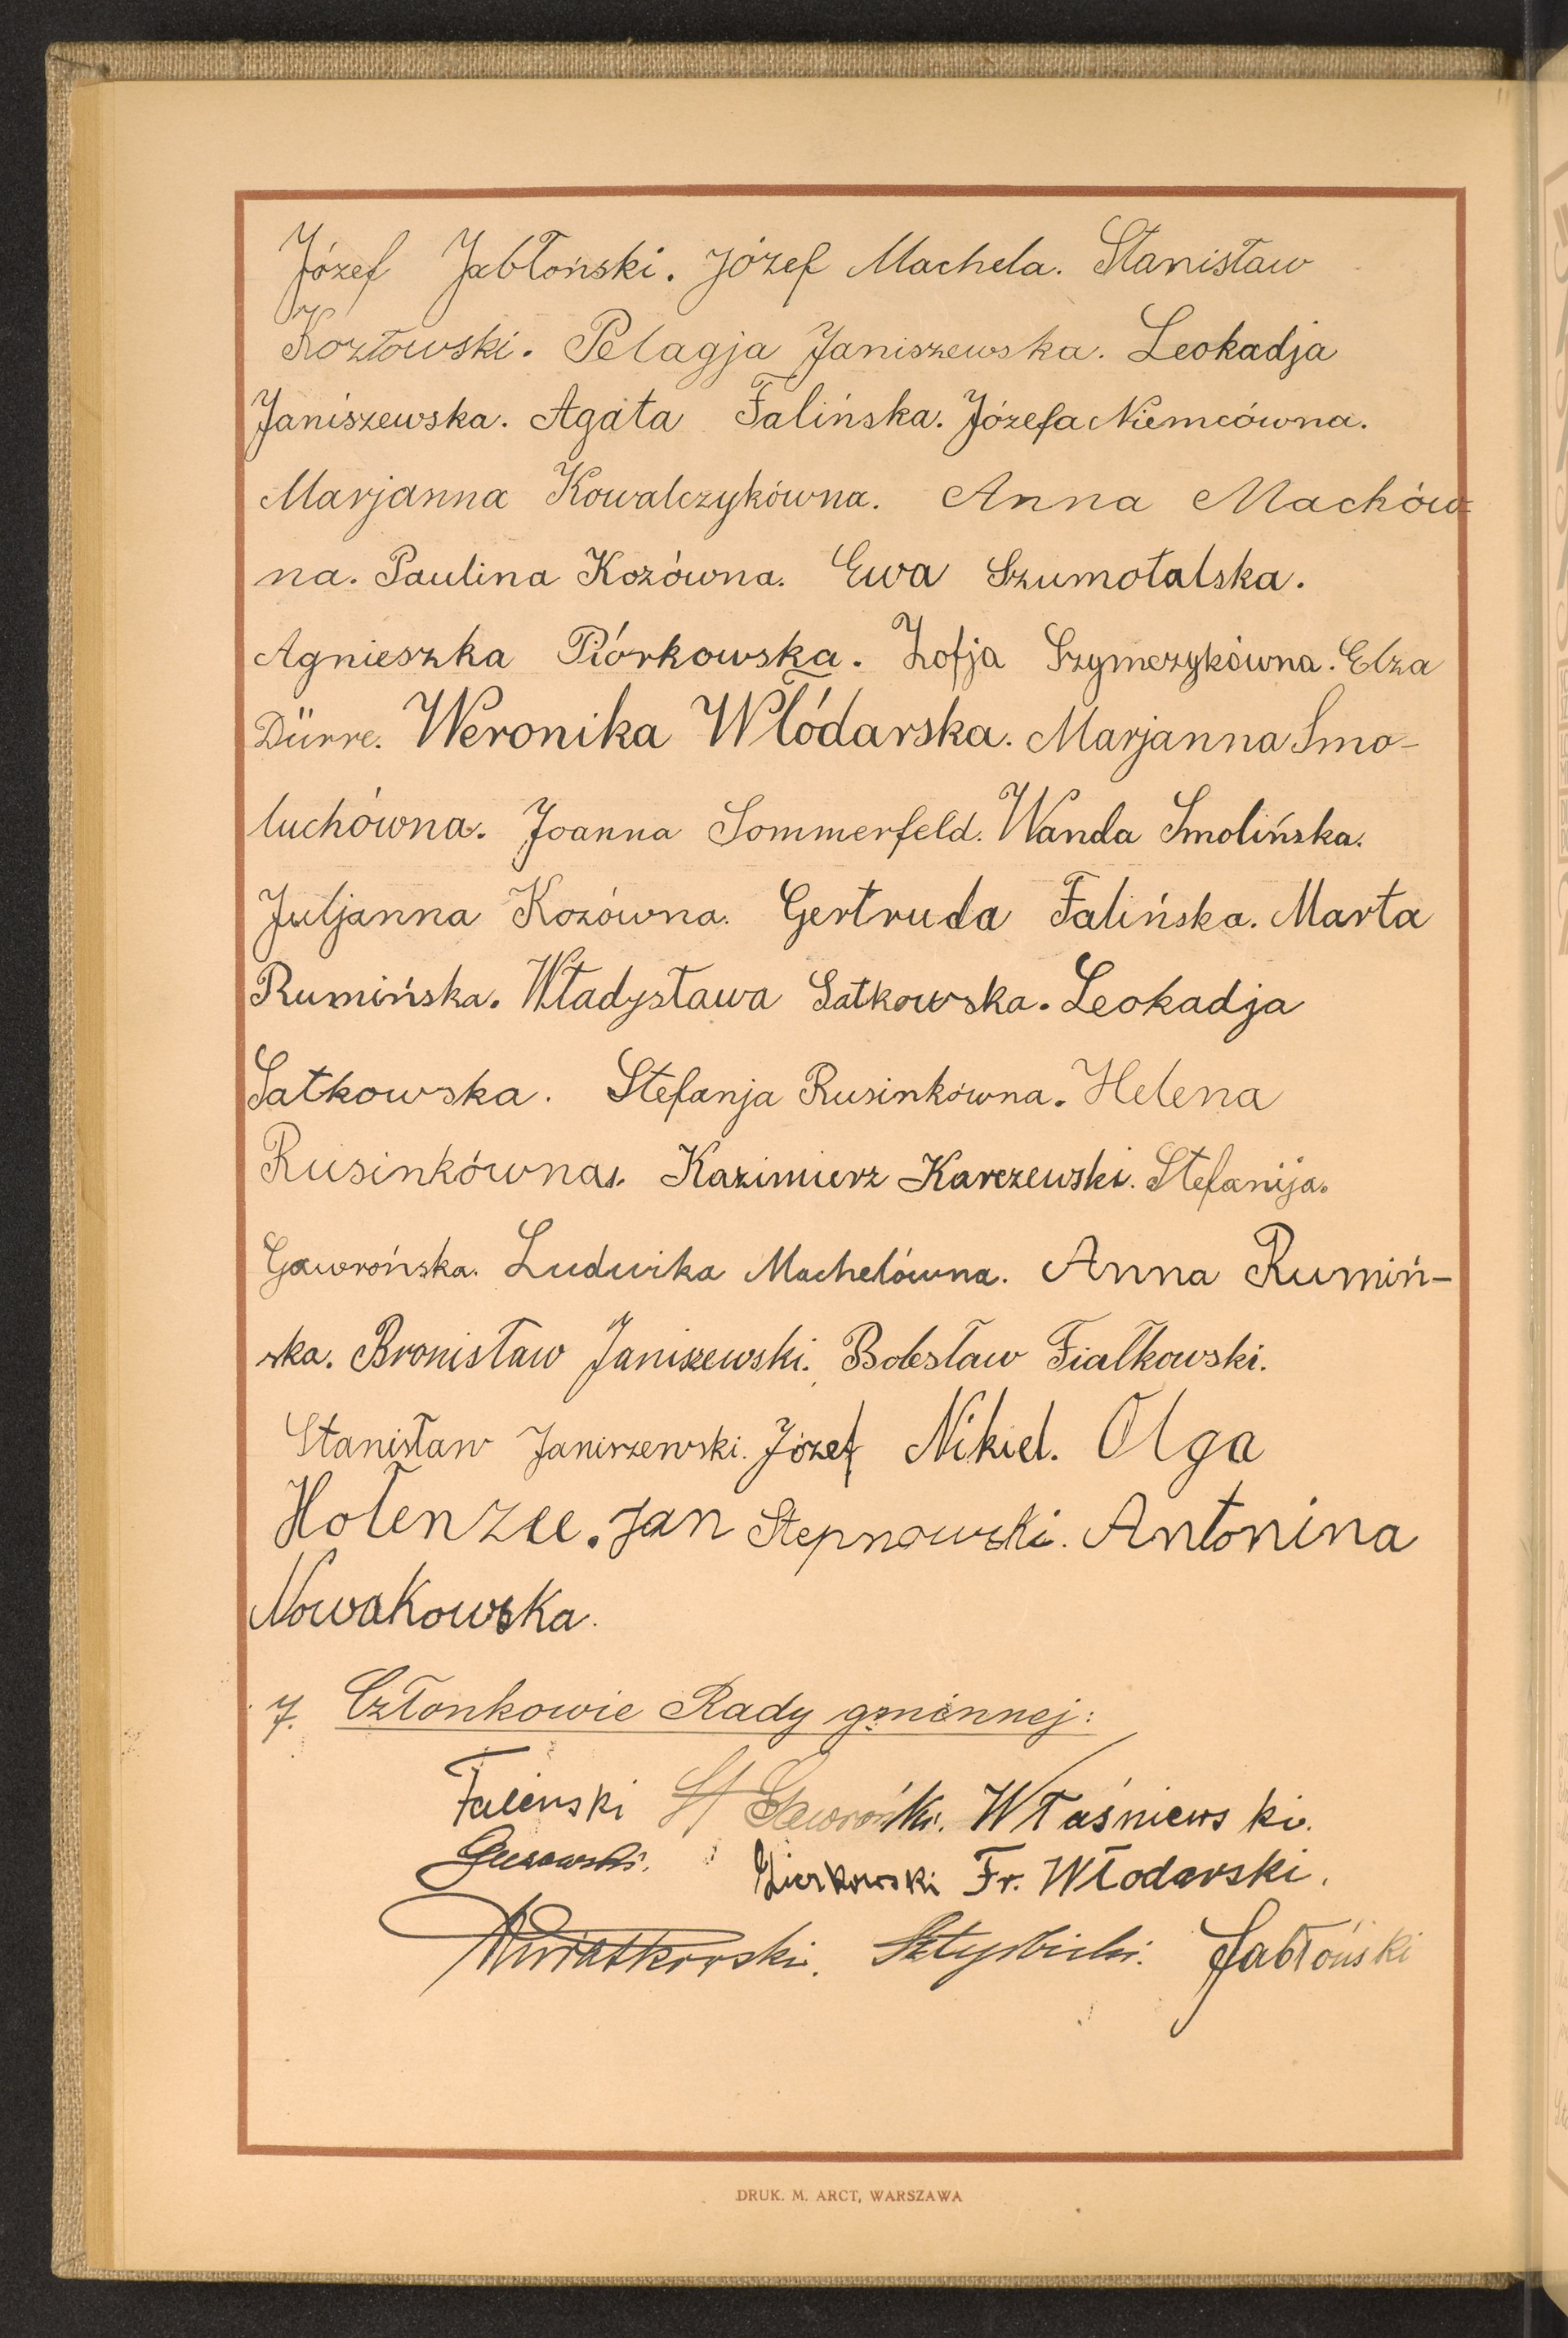 Józef Jabłoński. Józef Machela. Stanisław
Kozłowski. Pelagja Janiszewska. Leokadja
Janiszewska. Agata Falińska. Józefa Niemcówna.
Marjanna Kowalczykówna. Anna Machów-
na. Paulina Kozówna. Ewa Szumotalska.
Agnieszka Piórkowska. Zofja Szymczykówna. Elza
Dürre. Weronika Włódarska. Marjanna Smo-
luchówna. Joanna Sommerfeld. Wanda Smolińska.
Juljanna Kozówna. Gertruda Falińska. Marta
Rumińska. Władysława Satkowska. Leokadja
Satkowska. Stefanja Rusinkówna. Helena
Rusinkówna. Kazimierz Karczewski. Stefanija.
Gaworońska. Ludwika Machelówna. Anna Rumiń-
ska. Bronisław Janiszewski. Bolesław Fiałkowski.
Stanisław Janiszewski. Józef Nikiel. Olga
Hotenzee. Jan Stepnowski. Antonina
Nowakowska.
7. Członkowie Rady gminnej:
Falenski St Gawroński. Właśniewski.
Gusowski. Fr. Włodarski.
Kwiatkowski. Jabłoński
DRUK. M. ARCT, WARSZAWA